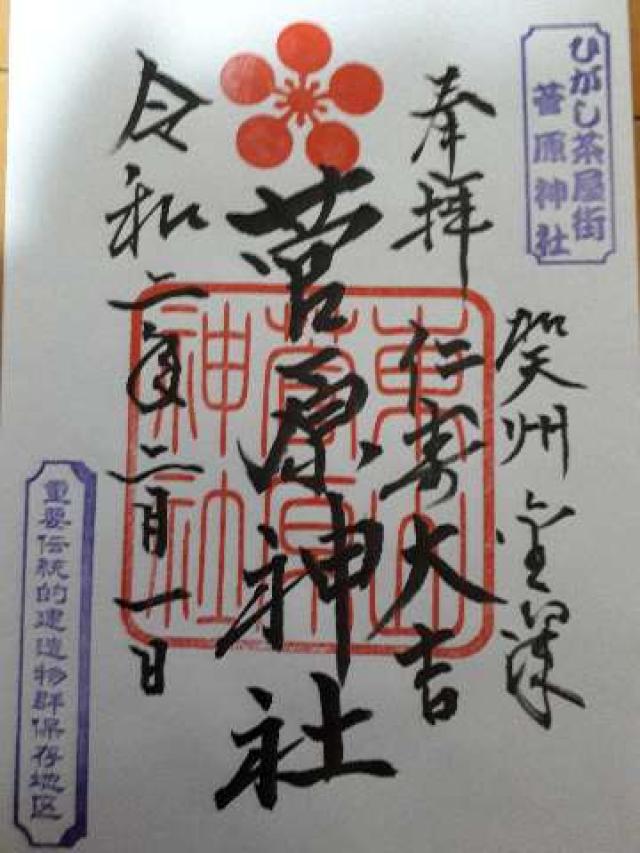 ひがし茶屋街
菅原神社
賀州金澤
奉拝
仁寿大吉
菅原神社
東山
菅原
神社
令和二年二月一日
重要伝統的建造物群保存地区